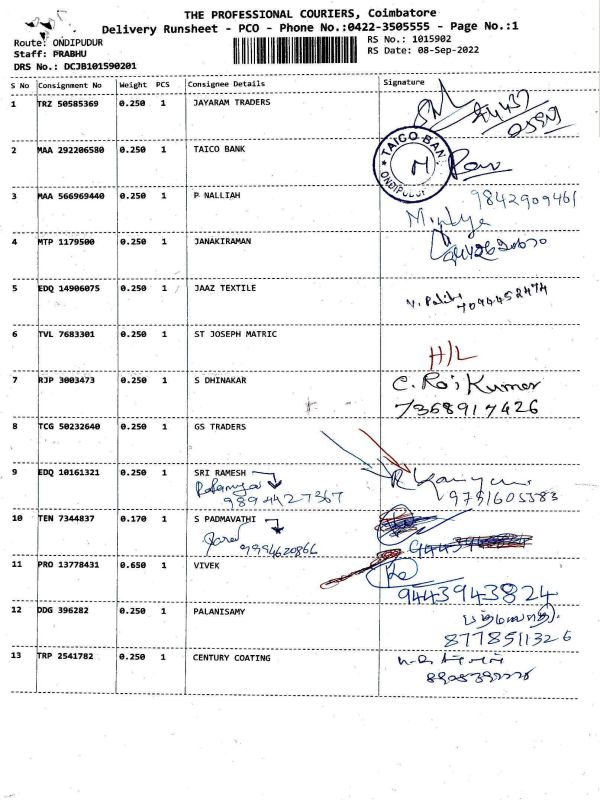 THE PROFESSIONAL COURIERS, Coimbatore
Delivery Runsheet - PCO - Phone No.:0422-3505555 - Page No.:1
Route: ONDIPUDUR
RS No.: 1015902
Staff: PRABHU
RS Date: 08-Sep-2022
DRS No.: DCJB101590201
S No Consignment No Weight PCS Consignee Details Signature
1 TRZ 50585369 0.250 1 JAYARAM TRADERS
2 MAA 292206580 0.250 1 TAICO BANK
TAICO BAN
ONDIPUDUR
3 MAA 566969440 0.250 1 P NALLIAH
9842909461
4 MTP 1179500 0.250 1 JANAKIRAMAN
5 EDQ 14906075 0.250 1 JAAZ TEXTILE
7094452474
6 TVL 7683301 0.250 1 ST JOSEPH MATRIC
H/L
7 RJP 3003473 0.250 1 S DHINAKAR
C. Raj Kumar
7368917426
8 TCG 50232640 0.250 1 GS TRADERS
9 EDQ 10161321 0.250 1 SRI RAMESH
9894427367
9791605583
10 TEN 7344837 0.170 1 S PADMAVATHI
9994620866
11 PRO 13778431 0.650 1 VIVEK
9443943824
12 DDG 396282 0.250 1 PALANISAMY
8778511326
13 TRP 2541782 0.250 1 CENTURY COATING